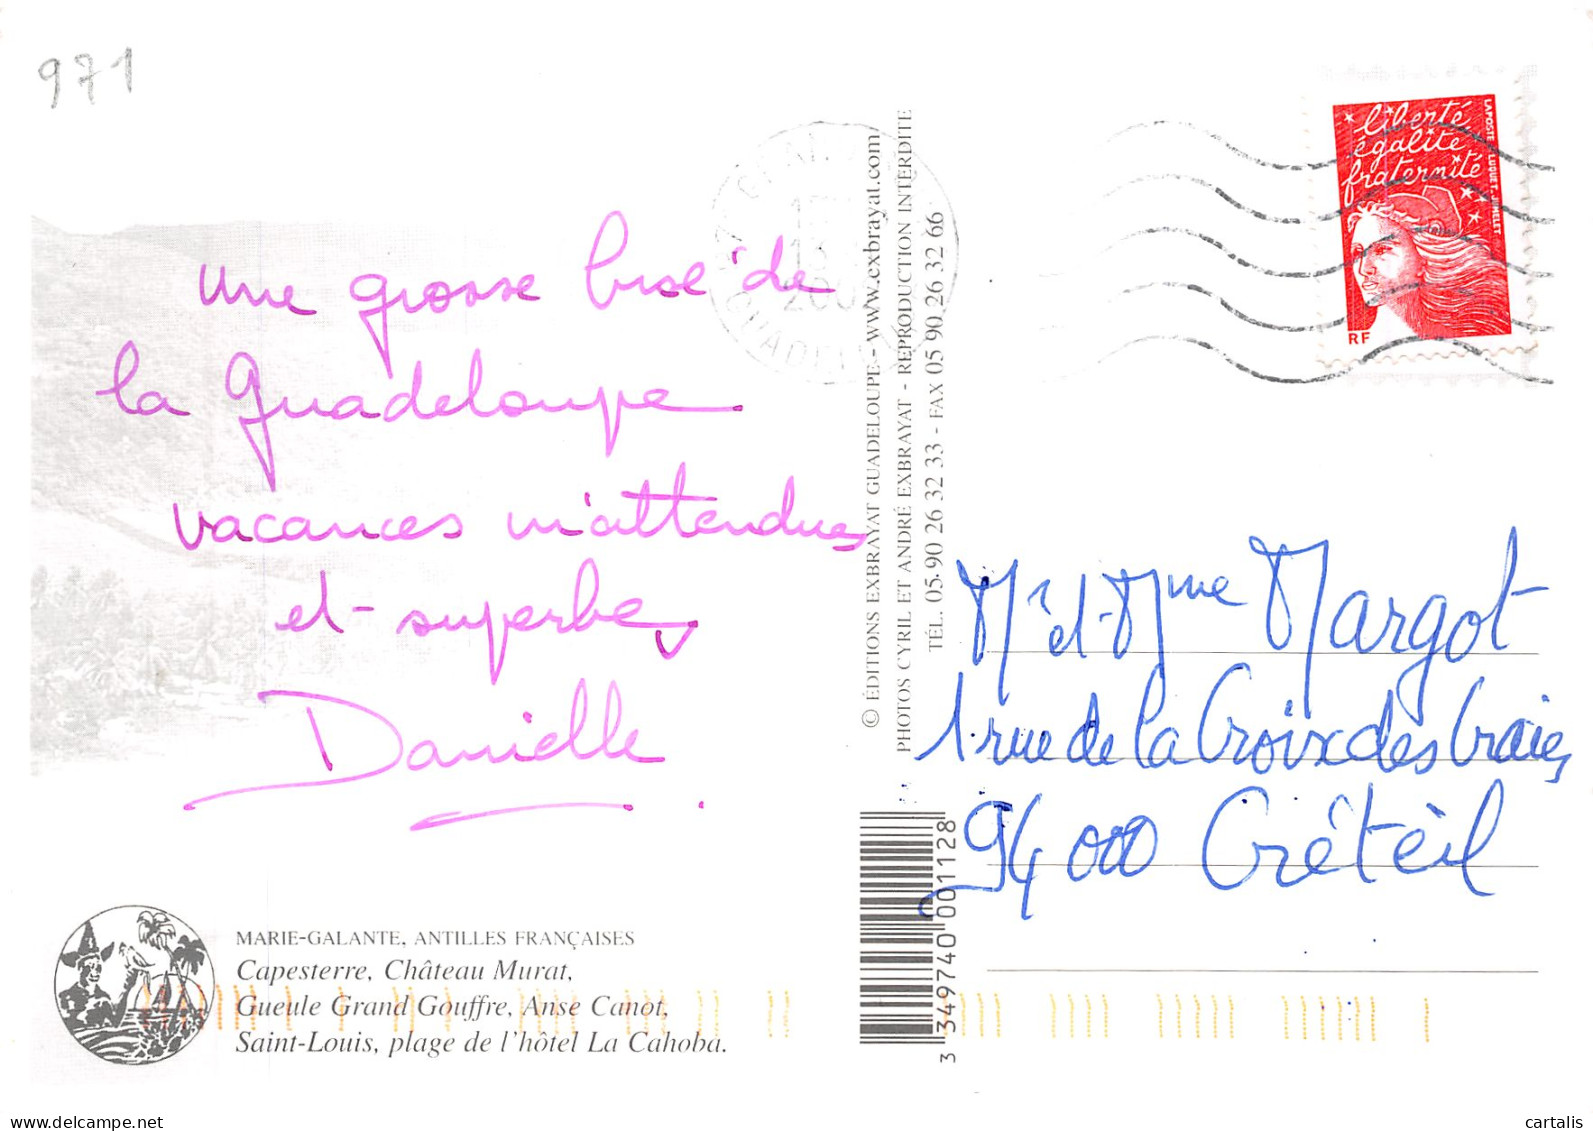 971
Une grosse bise de
la Guadeloupe
vacances inattendues
et superbes
Danielle
MARIE-GALANTE, ANTILLES FRANÇAISES
Capesterre, Château Murat,
Gueule Grand Gouffre, Anse Canot,
Saint-Louis, plage de l'hôtel La Cahoba.
© ÉDITIONS EXBRAYAT GUADELOUPE - www.exbrayat.com
PHOTOS CYRIL ET ANDRÉ EXBRAYAT - REPRODUCTION INTERDITE
TÉL. 05 90 26 32 33 - FAX 05 90 26 32 66
3 349740 001128
liberté
égalité
fraternité
LA POSTE LUQUET RF
Mr et Mme Margot
1 rue de la Croix des Graies
94 000 Créteil
www.delcampe.net
cartalis